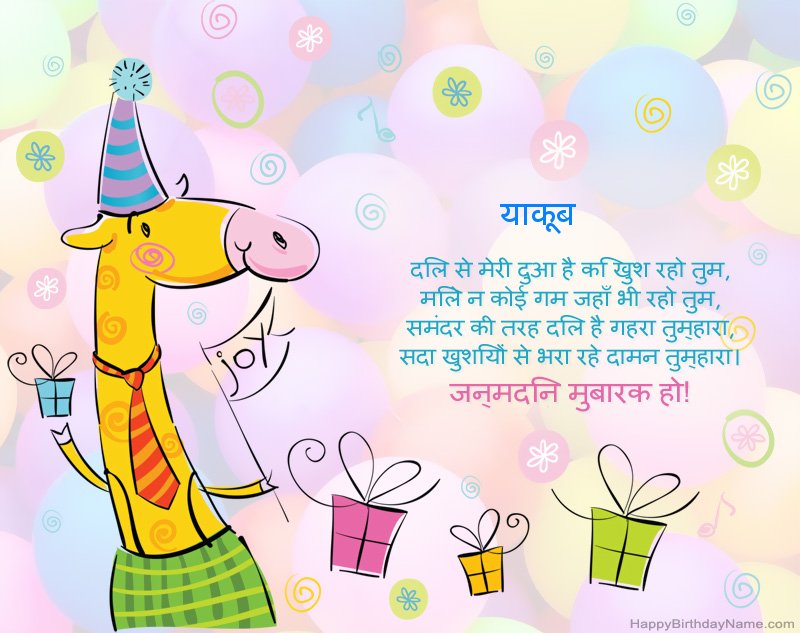 याकूब
दिल से मेरी दुआ है कि खुश रहो तुम,
मिले न कोई गम जहाँ भी रहो तुम,
समंदर की तरह दिल है गहरा तुम्हारा,
सदा खुशियों से भरा रहे दामन तुम्हारा।
जन्मदिन मुबारक हो!
joy
HappyBirthdayName.com